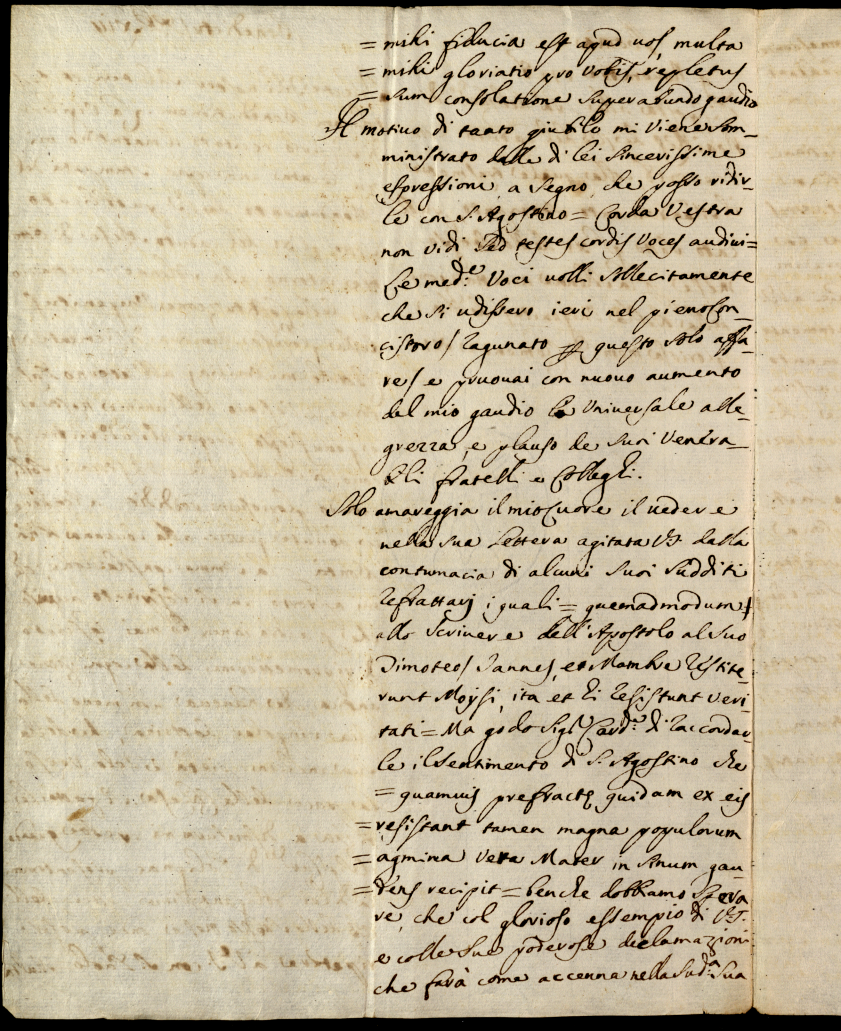 = mihi fiducia est apud vos, multa
= mihi gloriatio pro vobis, repletus
= sum consolatione superabundo gaudio
Il motivo di tanto giubilo mi viene som_
ministrato dalle di lei sincerissime
espressioni a segno, che posso ridir_
le con S. Agostino = Corda vestra
non vidi sed testes cordis voces audivi =
Le med.e voci volli sollecitamente
che si udissero ieri nel pieno Con_
cistoro / ragunato per questo solo affa_
re / e pruovai con nuovo aumento
del mio gaudio la universale alle_
grezza, e plauso de suoi venera_
bili fratelli e Colleghi.
Solo amareggia il mio Cuore il vedere
nella sua lettera agitata VS. dalla
contumacia di alcuni suoi sudditi
refrattarj i quali = quemadmodum /
allo scrivere dell'Apostolo al suo
Timoteo / Jannes, et Mambre restite_
runt Moysi, ita et hi resistunt veri_
tati = Ma godo Sig.r Card.e di raccordar_
le il sentimento di S. Agostino che
= quamvis prefractę quidam ex eis
= resistant tamen magna populorum
= agmina vera Mater in sinum gau_
= dens recipit = benche dobbiamo spera_
re, che col glorioso essempio di VS.
e colle sue poderose declamazioni
che farà come accenna nella sud.a sua